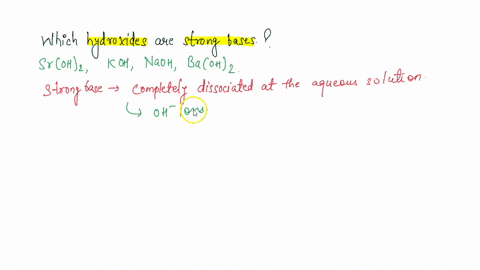 Which hydroxides are strong bases ?
Sr(OH)2, KOH, NaOH, Ba(OH)2.
Strong base → completely dissociated at the aqueous solution.
↳ OH⁻ ions